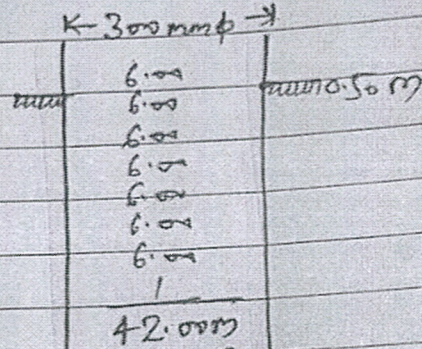 K- 300 mmφ -X
6.00
6.00 0.50 m
6.00
6.00
6.00
6.00
6.00
1
42.00m